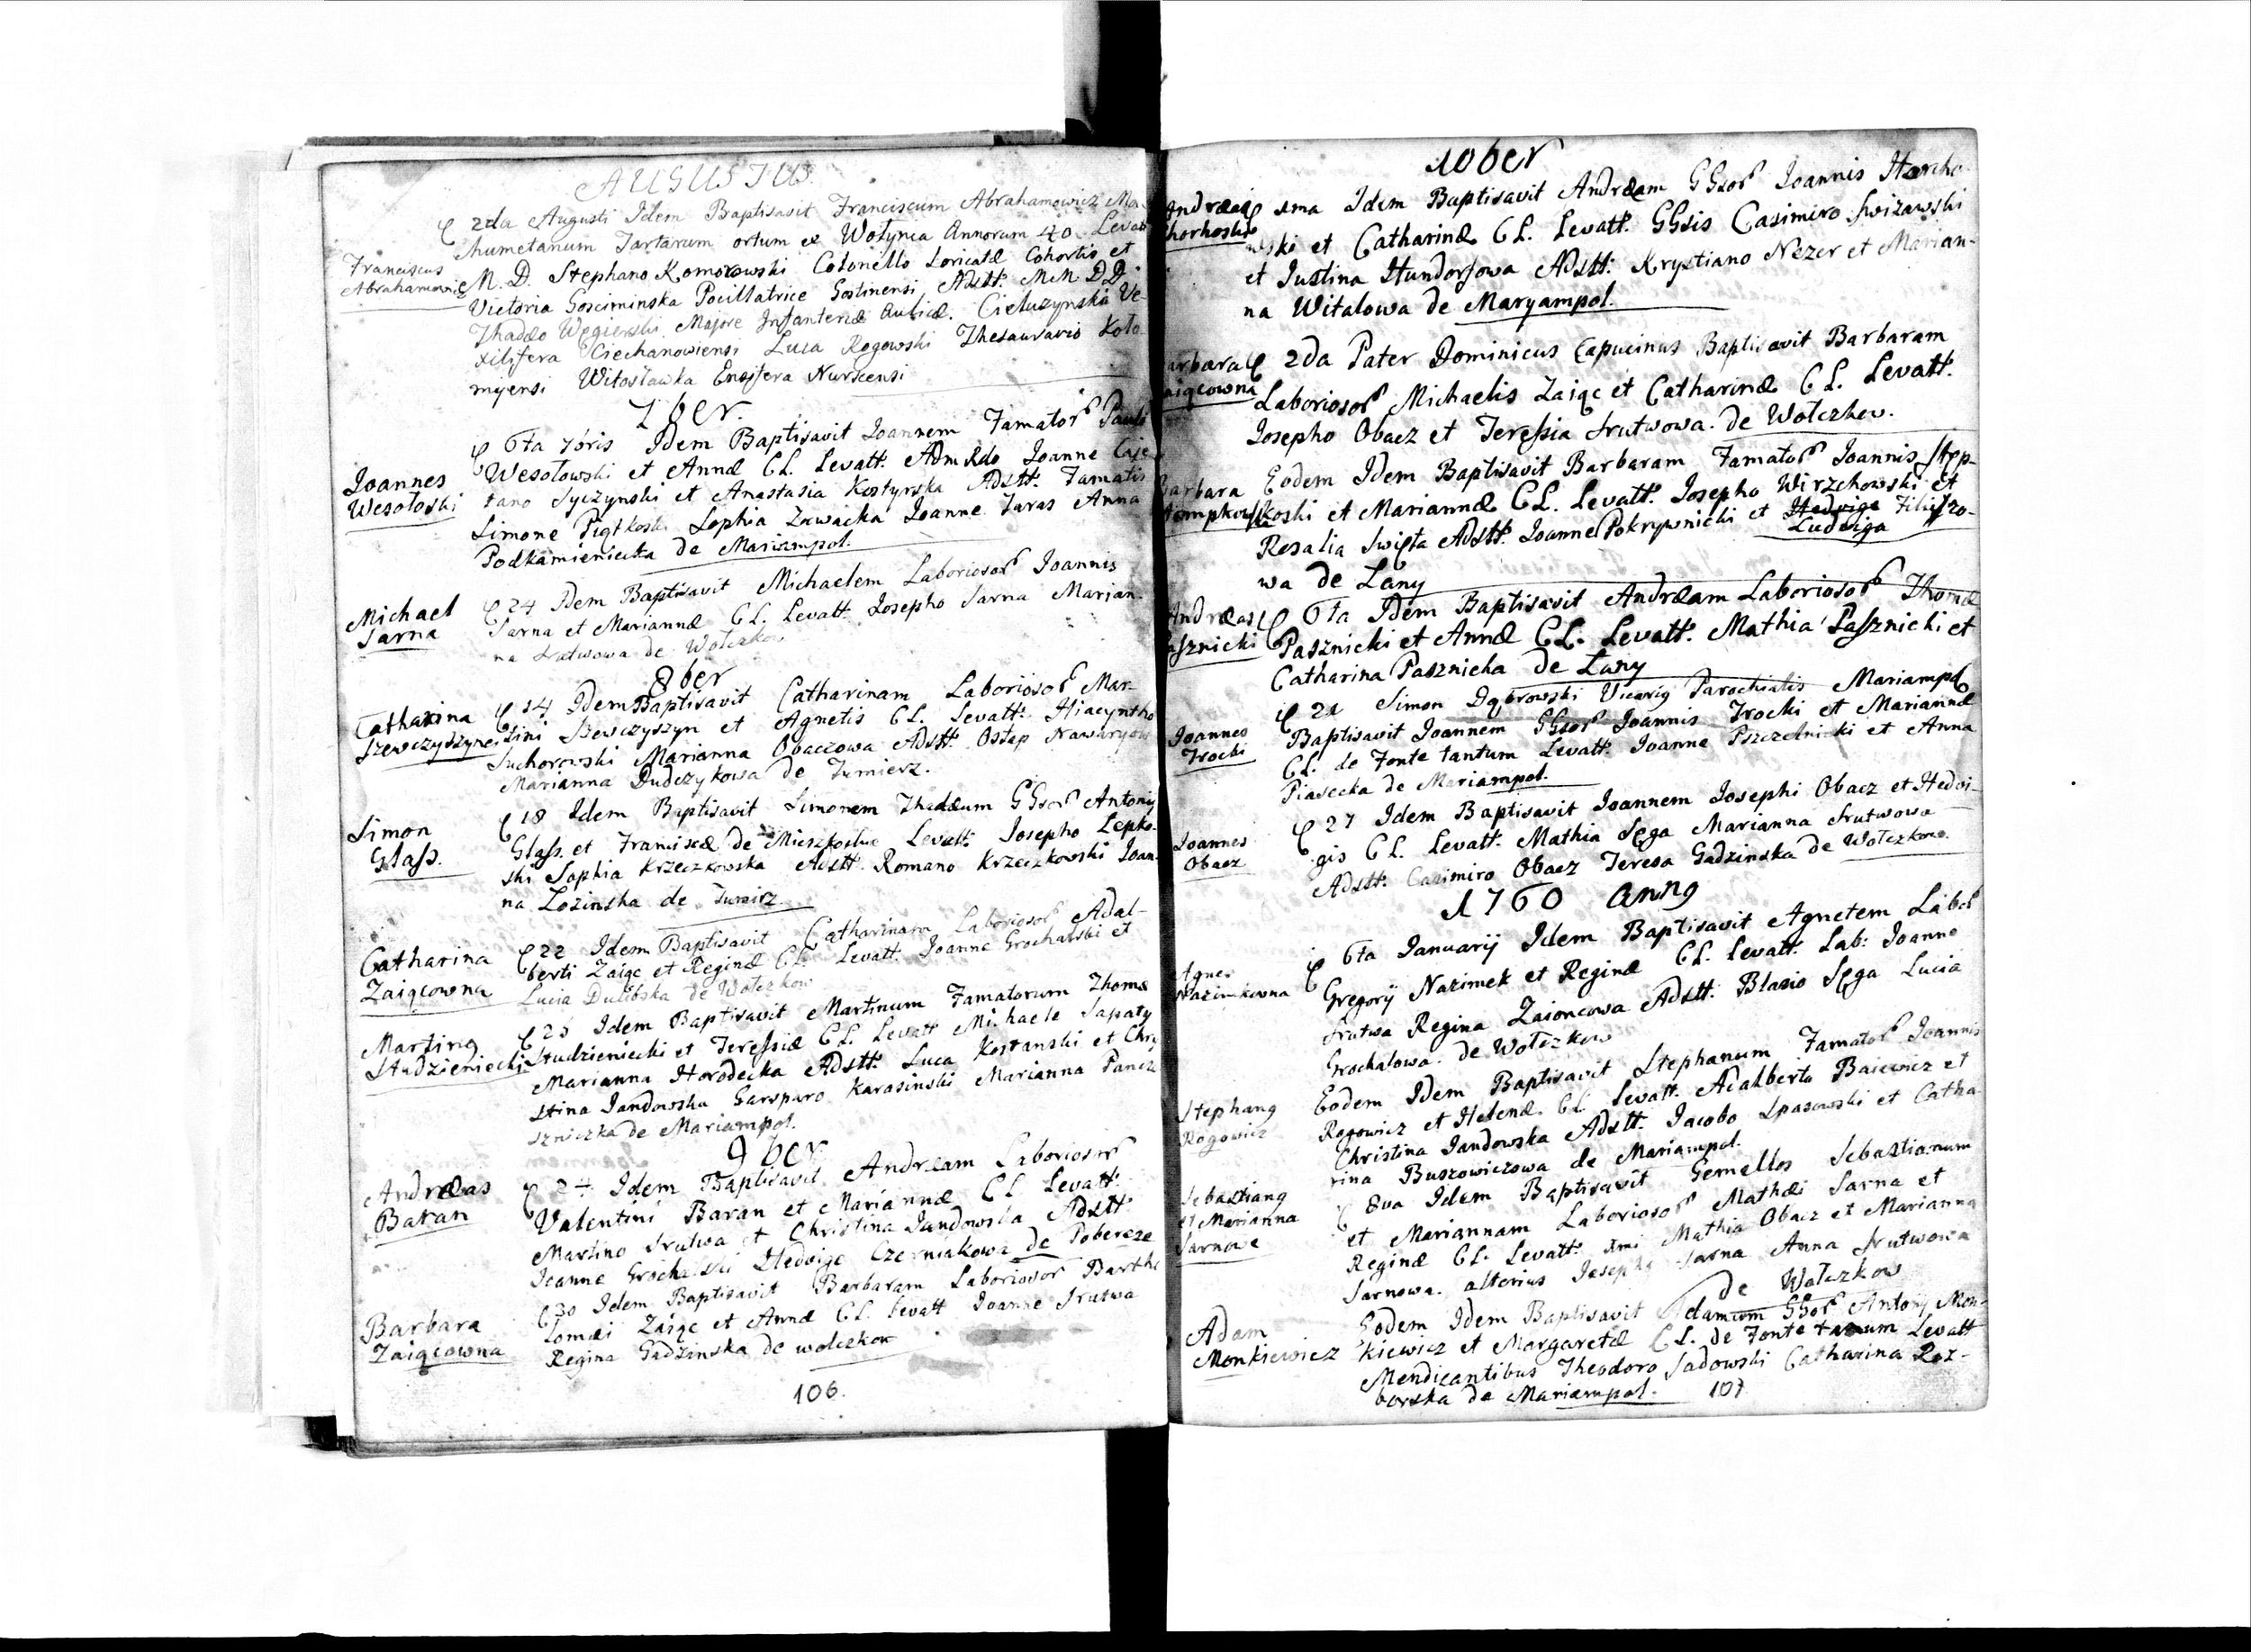 AUGUSTUS.
2da Augusti Idem Baptisavit Franciscum Abrahamowicz Ma-
humetanum Tartarum ortum ex Wołynia Annorum 40 Levatt
Franciscus
Abrahamowicz
M. D. Stephano Komorowski Colonello Loricatæ Cohortis et
Victoria Gosciminska Pocillatrice Gostinensi Adstt. M M D D
Thadæo Węgierski Majore Infanteriæ Aulicæ. Cieluzynska Ve-
xilifera Ciechanowiensi Luca Rogowski Thesaurario Koło
myensi Witosławka Ensifera Nurscensi
7ber.
6ta 7bris Idem Baptisavit Joannem Famator Pauli
Joannes
Wesołoski
Wesołowski et Annæ CL. Levatt. Adm Rdo Joanne Caje
tano Syczynski et Anastasia Kostyrska Adstt. Famatis
Simone Piątkoski Sophia Zawacka Joanne Taras Anna
Podkamieniecka de Mariampol.
Michael
Sarna
24 Idem Baptisavit Michaelem Laborioso Joannis
Sarna et Mariannæ CL. Levatt. Josepho Sarna Marian-
na Srutwowa de Wołczkow
8ber
Catharina
Szewczyszynei
14 Idem Baptisavit Catharinam Laborioso Mar-
tini Szewczyszyn et Agnetis CL. Levatt. Hiacyntho
Suchorowski Marianna Obaczowa Adstt. Ostap Nawaryow
Marianna Dudczykowa de Jumierz.
Simon
Glass.
18 Idem Baptisavit Simonem Thadæum GGsor Antonij
Glass. et Franciscæ de Mieszkoslue Levatt. Josepho Lepko-
ski Sophia Krzeczkowska Adstt. Romano Krzeczkowski Joan-
na Łozinska de Jumirz
Catharina
Zaiącowna
22 Idem Baptisavit Catharinam Laborioso Adal-
berti Zaiąc et Reginæ CL. Levatt. Joanne Grochalski et
Lucia Dulibska de Wołczkow
Martinus
Studzieniecki
25 Idem Baptisavit Martinum Famatorum Thomæ
Studzieniecki et Teressiæ CL. Levatt Michaele Sapaty
Marianna Horodecka Adstt. Luca Kostanski et Chry
stina Jandowska Gasparo Karasinski Marianna Pancze
szniczka de Mariampol.
9ber
Andræas
Baran
24 Idem Baptisavit Andræam Laborioso
Valentini Baran et Mariannæ CL Levatt.
Martino Srutwa et Christina Jandowska Adstt
Joanne Grochalski Hedvige Czerniakowa de Pobereze
Barbara
Zaiącowna
30 Idem Baptisavit Barbaram Laboriosor Bartho
lomæi Zaiąc et Annæ CL. Levatt Joanne Srutwa
Regina Gadzinska de wołczkow
106.
10ber
Andræas
1ma Idem Baptisavit Andræam GGsor Joannis Horcho-
wski et Catharinæ CL. Levatt. GGsis Casimiro Swizawski
et Justina Hundorsowa Adstt. Krystiano Nezer et Marian-
na Witalowa de Maryampol.
Barbara
Zaiącowna
2da Pater Dominicus Capucinus Baptisavit Barbaram
Laboriosor Michaelis Zaiąc et Catharinæ CL. Levatt.
Josepho Obacz et Teressia Srutwowa de Wołczkow.
Barbara
Eodem Idem Baptisavit Barbaram Famator Joannis Stęp-
koski et Mariannæ CL. Levatt. Josepho Wirzchowski et
Rosalia Swięta Adstt. Joanne Pokrywnicki et Hedvige Filiszo-
Ludwiga
wa de Łany
Andræas
Pasznicki
6ta Idem Baptisavit Andræam Laborioso Thomæ
Pasznicki et Annæ CL. Levatt. Mathia Pasznicki et
Catharina Pasznicka de Łany
Joannes
Trocki
21 Simon Dąbrowski Vicarig Parochialis Mariampol
Baptisavit Joannem GGsor Joannis Trocki et Mariannæ
CL. de Fonte tantum Levatt. Joanne Pszczelnicki et Anna
Piasecka de Mariampol.
Joannes
Obacz
27 Idem Baptisavit Joannem Josephi Obacz et Hedvi-
gis CL. Levatt. Mathia Sęga Marianna Srutwowa
Adstt. Casimiro Obacz Teresa Gadzinska de Wołczkow.
1760 Anng
Agnes
Nazimkowna
6ta Januarij Idem Baptisavit Agnetem Labo
Gregorij Nazimek et Reginæ CL. Levatt. Lab: Joanne
Srutwa Regina Zaioncowa Adstt. Blasio Sęga Lucia
Grochalowa de Wołczkow
Stephang
Rogowicz
Eodem Idem Baptisavit Stephanum Famator Joannis
Rogowicz et Helenæ CL Levatt. Adalberto Baiewicz et
Christina Jandowska Adstt. Jacobo Spasowski et Catha
rina Buszowiczowa de Mariampol.
Sebastiang
et Marianna
Sarnowe
8va Idem Baptisavit Gemellos Sebastianum
et Mariannam Laborioso Mathæi Sarna et
Reginæ CL. Levatt. 1mi Mathia Obacz et Marianna
Sarnowa alterius Josepho Sarna Anna Srutwowa
de Wołczkow
Adam
Monkiewicz
Eodem Idem Baptisavit Adamum GGsor Antonij Mon-
kiewicz et Margaretæ CL. de Fonte tantum Levatt
Mendicantibus Theodoro Sadowski Catharina Roz-
borska de Mariampol.
107